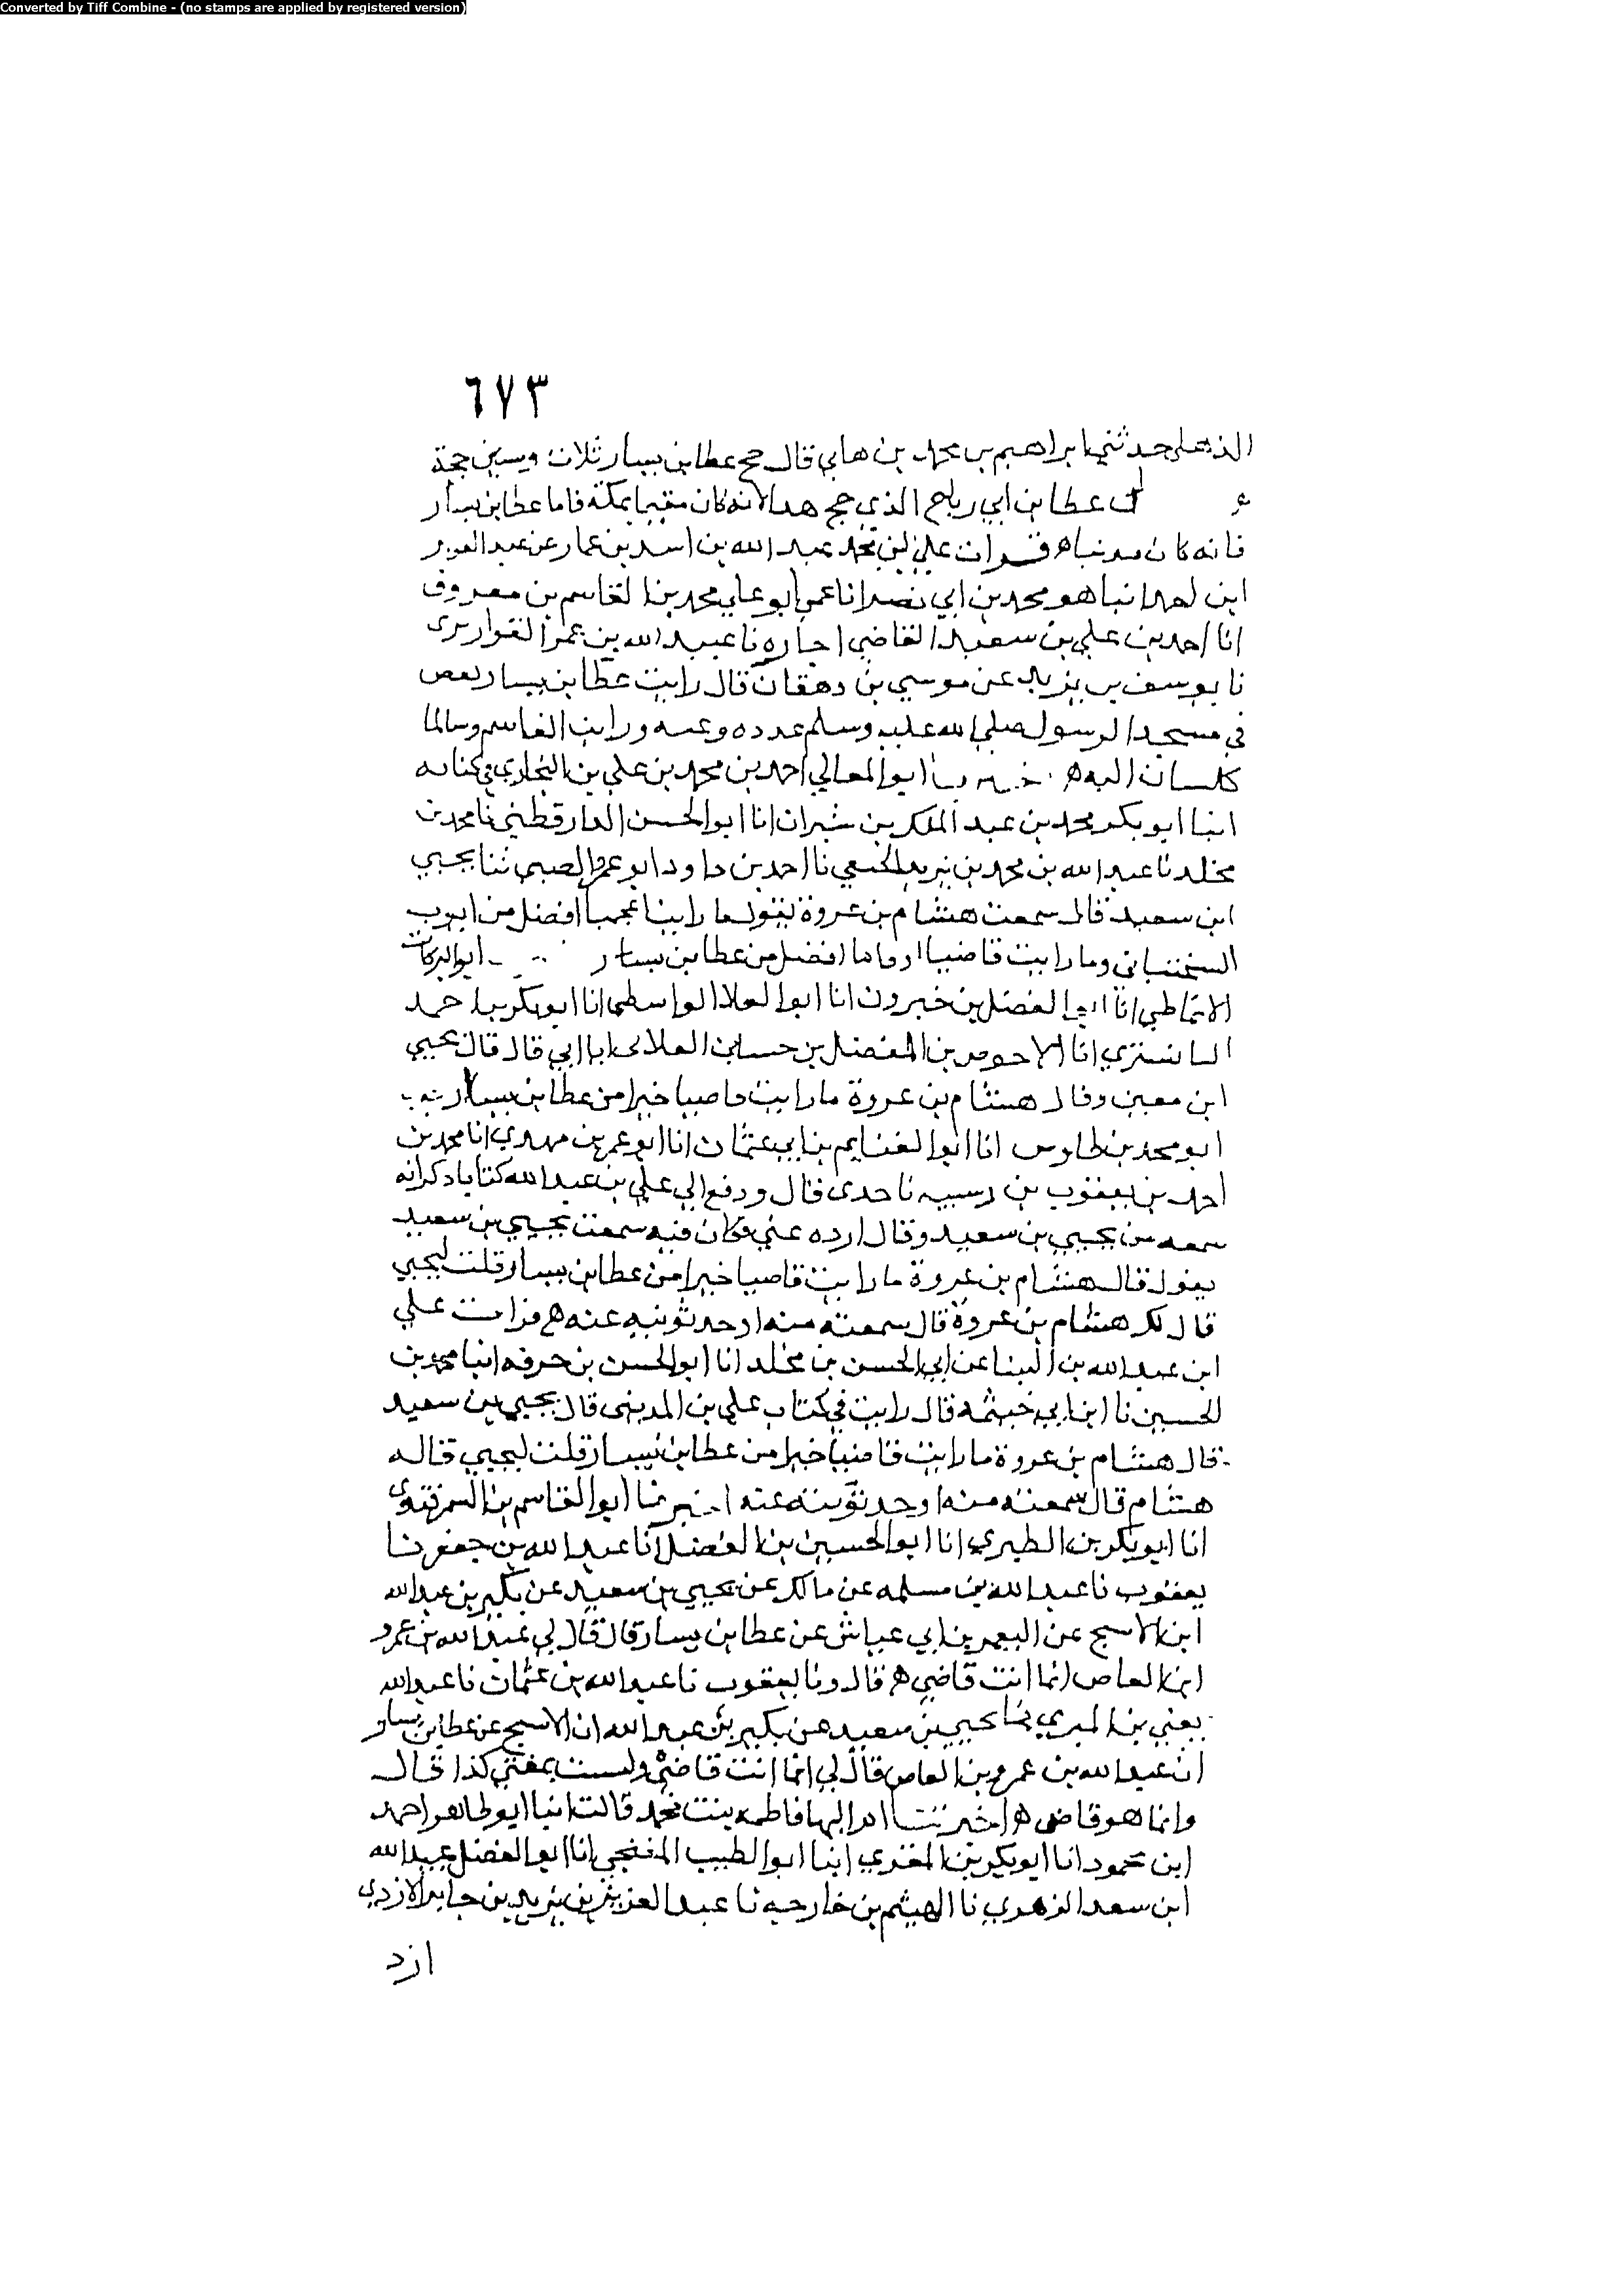 Converted by Tiff Combine - (no stamps are applied by registered version)
٦٧٣
الذهلي حدثني ابراهيم بن محمد بن هاني قال حج عطا بن يسار ثلاث وستين حجة
عطا بن ابي رباح الذي حج هذا لانه كان مقيما بمكة فاما عطا بن يسار
فانه كان مدنيا ه قرات علي ابن محمد عبد الله بن اسد بن عمار عن عبد العزيز
ابن احمد انبا هو محمد بن ابي نصر انا عمي ابو علي محمد بن القاسم بن معروف
انا احمد بن علي بن سعيد القاضي اجازه نا عبيد الله بن عمر القواريرى
نا يوسف بن يزيد عن موسي بن دهقان قال رايت عطا بن يسار يقص
في مسجد الرسول صلي الله عليه وسلم عدده وعسه ورايت القاسم وسالما
ابو المعالي احمد بن محمد بن علي بن البخاري في كتابه
انبا ابو بكر محمد بن عبد الملك بن بشران انا ابو الحسن الدارقطني نا محمد بن
مخلد نا عبد الله بن محمد بن يزيد الحنفي نا احمد بن داود ابو عمر الضبي ثنا يحيي
ابن سعيد قال سمعت هشام بن عروة يقول ما راينا عجميا افضل من ايوب
السختياني وما رايت قاضيا او قاصا افضل من عطا بن يسار ابو البركات
الانماطي انا ابو الفضل بن خيرون انا ابو العلا الواسطي انا ابو بكر بن احمد
البابسيري انا الاحوص بن المفضل بن حسان الغلابي انا ابي قال قال يحيي
ابن معين وقال هشام بن عروة ما رايت قاصيا خيرا من عطا بن يسار
ابو محمد بن طاوس انا ابو الغنايم بن ابي عثمان انا ابو عمر بن مهدي انا محمد بن
احمد بن يعقوب بن شيبه نا جدى قال ودفع الي علي بن عبد الله كتابا ذكر انه
سمعه من يحيي بن سعيد وقال اروه عني فكان فيه سمعت يحيي بن سعيد
يقول قال هشام بن عروة ما رايت قاصيا خيرا من عطا بن يسار قلت ليحيي
قال لك هشام بن عروة قال سمعته منه او حدثونيه عنه ه قرات علي
ابن عبد الله بن البنا عن ابي الحسن بن مخلد انا ابو الحسن بن خزفه انبا محمد بن
الحسين نا ابن ابي خيثمه قال رايت في كتاب علي بن المديني قال يحيي بن سعيد
قال هشام بن عروة ما رايت قاضيا خيرا من عطا بن يسار قلت ليحيي قاله
هشام قال سمعته منه او حدثونيه عنه اخبرنا ابو القاسم بن السمرقندى
انا ابو بكر بن الطبري انا ابو الحسين بن الفضل انا عبد الله بن جعفر نا
يعقوب نا عبد الله بن مسلمه عن مالك عن يحيي بن سعيد عن بكير بن عبد الله
ابن الاسج عن النعمن بن ابي عياش عن عطا بن يسار قال قال لي عبد الله بن عمرو
ابن العاص انما انت قاضي ه قال ونا يعقوب نا عبد الله بن عثمان نا عبد الله
يعني بن المبرك نا يحيي بن سعيد عن بكير بن عبد الله ابن الاسج عن عطا بن يسار
ان عبد الله بن عمرو بن العاص قال لي انما انت قاضي ولست بمفتي كذا قال
وانما هو قاص ه اخبرتنا ام البها فاطمه بنت محمد قالت انبا ابو طاهر احمد
ابن محمود انا ابو بكر بن المقري انبا ابو الطيب المنبجي انا ابو الفضل عبيد الله
ابن سعد الزهري نا الهيثم بن خارجه نا عبد العزيز بن يزيد بن جابر الازدي
ازد